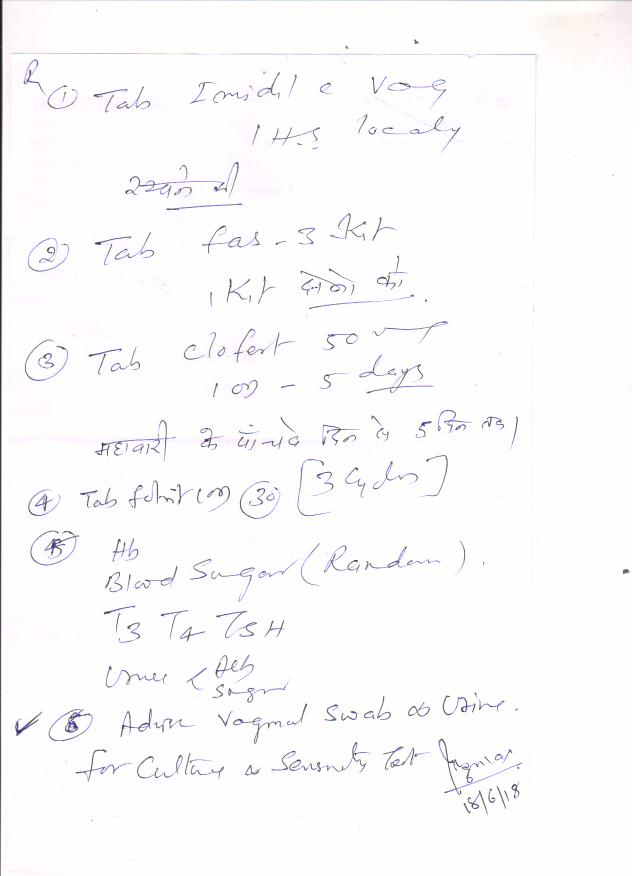 R
① Tab Imidil c Vag
1 H.S localy
② Tab fas-3 Kit
1 Kit दोनो को
③ Tab Clofert 50
1 OD - 5 days
माहवारी के पाँचवे दिन से 5 दिन तक।
④ Tab folvit OD 30 [3 Cycles]
5 Hb
Blood Sugar (Random).
T3 T4 TSH
Urine < Alb
Sugar
✓ 6 Advise Vaginal Swab & Urine.
for Culture & Sensitivity Test
18/6/18